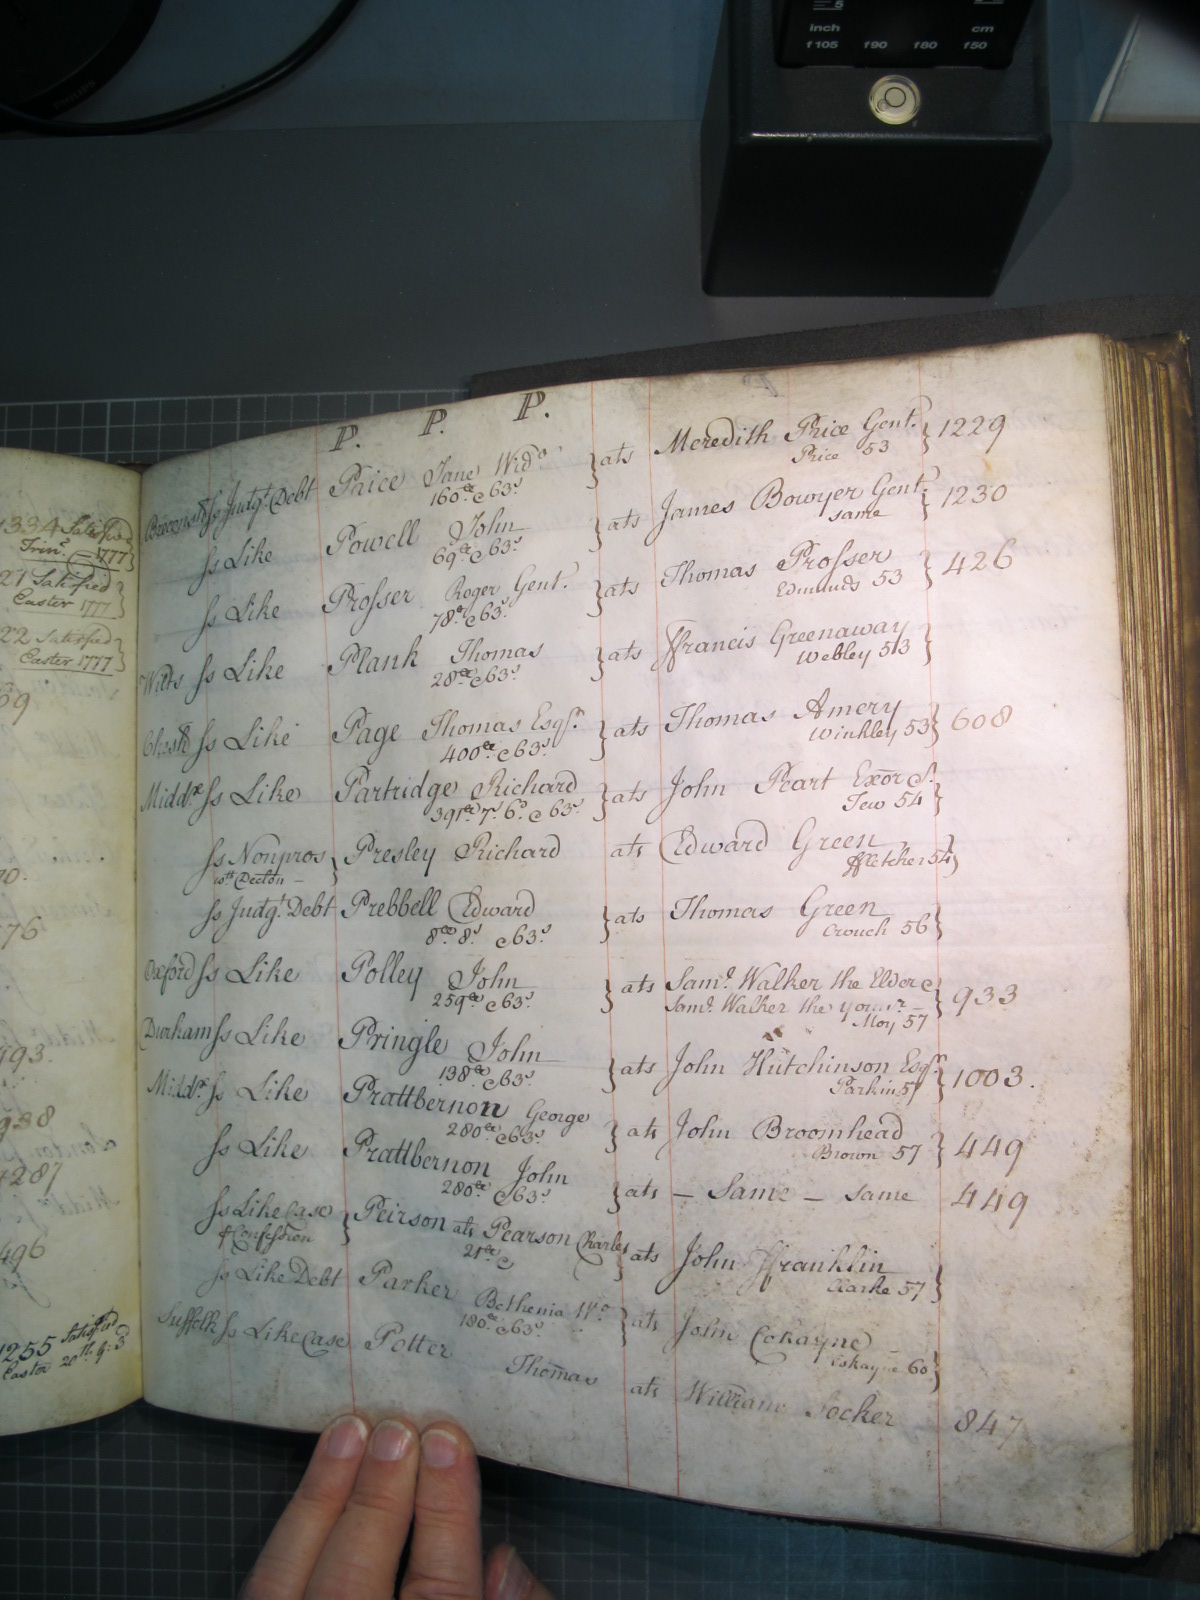 inch
cm
f105 f90 f80 f50
P. P. P.
1334 Satisfied
Trin. 1777
21 Satisfied
Easter 1777
22 Satisfied
Easter 1777
1255 Satisfied
Easter 20th
Ss Judgt. Debt Paice Jane Wido. ats Meredith Price Gent. 1229
160£ & 63s Price 53
Ss Like Powell John ats James Bowyer Gent. 1230
69£ & 63s same
Ss Like Prosser Roger Gent. ats Thomas Prosser 426
78£ & 63s Edmunds 53
Wilts Ss Like Plank Thomas ats ffrancis Greenaway
28£ & 63s Webley 53
Ss Like Page Thomas Esqr. ats Thomas Amery 608
400£ & 63s Winkley 53
Middx Ss Like Partridge Richard ats John Peart Exor &c.
391£ 7s 6d & 63s Tew 54
Ss Nonpros Presley Richard ats Edward Green
ffletcher 54
Ss Judgt. Debt Prebbell Edward ats Thomas Green
8£ 8s & 63s Crouch 56
Oxford Ss Like Polley John ats Saml. Walker the Elder & 933
259£ & 63s Saml. Walker the youngr.
Moy 57
Durham Ss Like Pringle John ats John Hutchinson Esqr. 1003.
138£ & 63s Parkin 57
Middx Ss Like Prattbernon George ats John Broomhead 449
280£ & 63s Brown 57
Ss Like Prattbernon John ats – Same – same 449
280£ & 63s
Ss Like Case Peirson ats Pearson Charles ats John ffranklin
& Confession 21£ & Clarke 57
Ss Like Debt Parker Bethenia Wo. ats John Cokayne
180£ & 63s Cokayne 60
Suffolk Ss Like Case Potter Thomas ats William Jocker 847